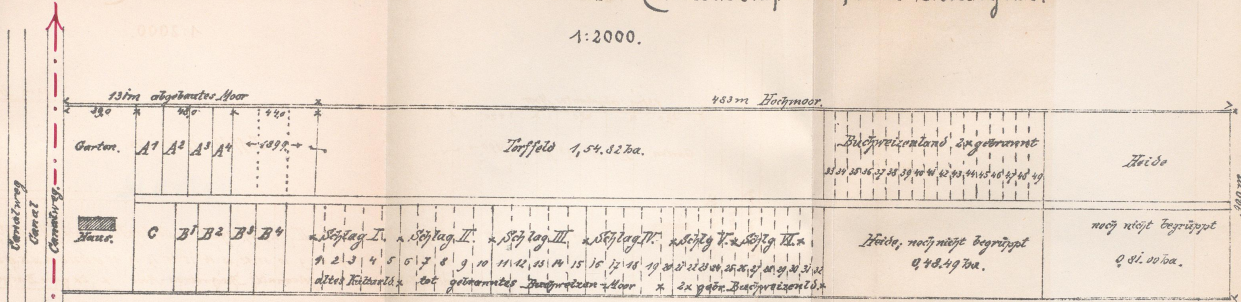 1:2000.
131m abgebautes Moor
483m Hochmoor.
39,0 48,0 44,0
Garten. A1 A2 A3 A4 1899.
Torffeld 1,54.82 ha.
Buchweizenland 2x gebrannt
33 34 35 36 37 38 39 40 41 42 43 44 45 46 47 48 49
Heide
100m
Canalweg
Canal
Canalweg.
Haus. C B1 B2 B3 B4
Schlag I. Schlag II. Schlag III. Schlag IV. Schlg V. Schlg VI.
1 2 3 4 5 6 7 8 9 10 11 12 13 14 15 16 17 18 19 20 21 22 23 24 25 26 27 28 29 30 31 32
altes Kulturld. tot gebranntes Buchweizen-Moor 2x gebr. Buchweizenld.
Heide; noch nicht begrüppt
0,48.49 ha.
noch nicht begrüppt
0,81.00 ha.